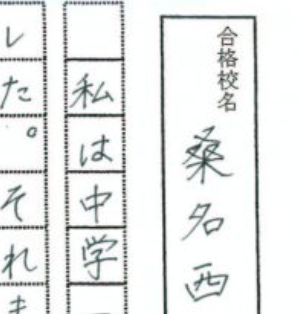 合格校名
桑名西
私は中学
した。それま